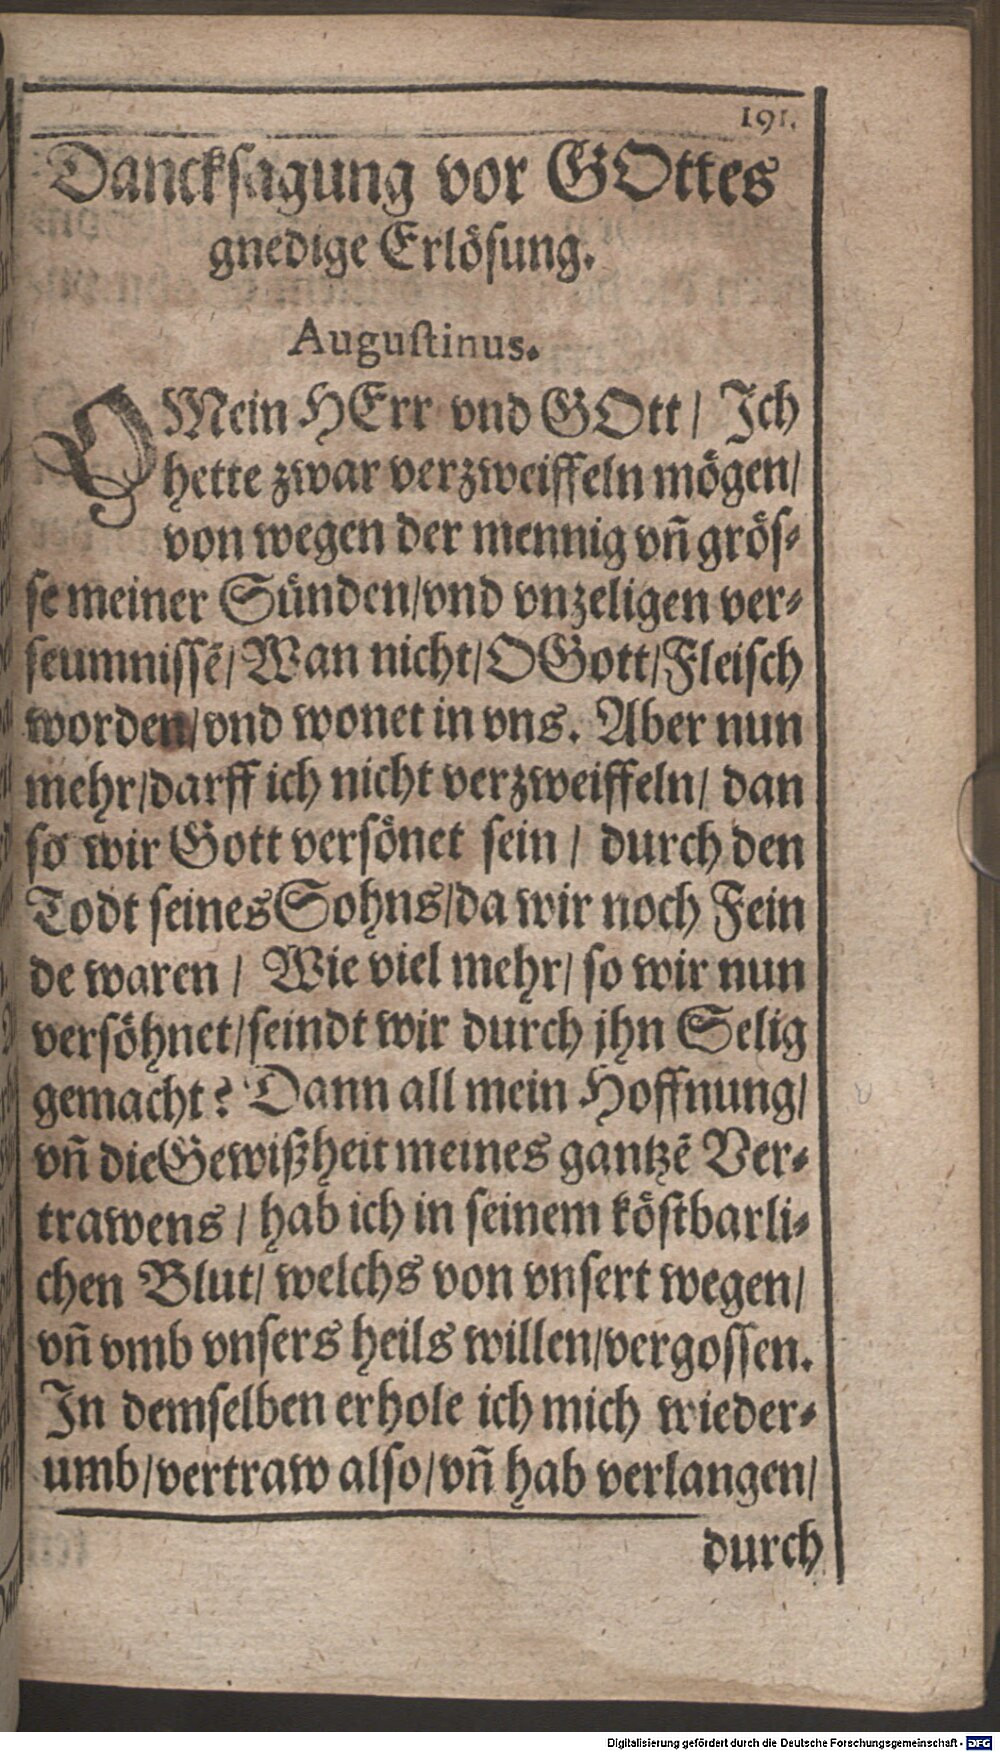 191.
Dancksagung vor GOttes
gnedige Erlösung.
Augustinus.
O Mein HErr vnd GOtt / Ich
hette zwar verzweiffeln mögen/
von wegen der mennig vñ grös-
se meiner Sünden/vnd vnzeligen ver-
seumnissẽ/ Wan nicht/ O Gott/ Fleisch
worden/vnd wonet in vns. Aber nun
mehr/darff ich nicht verzweiffeln/ dan
so wir Gott versönet sein / durch den
Todt seines Sohns/da wir noch Fein
de waren / Wie viel mehr/ so wir nun
versöhnet/seindt wir durch jhn Selig
gemacht? Dann all mein Hoffnung/
vñ die Gewißheit meines gantzẽ Ver-
trawens / hab ich in seinem köstbarli-
chen Blut/ welchs von vnsert wegen/
vñ vmb vnsers heils willen/vergossen.
In demselben erhole ich mich wieder-
umb/vertraw also/vñ hab verlangen/
durch
Digitalisierung gefördert durch die Deutsche Forschungsgemeinschaft - DFG